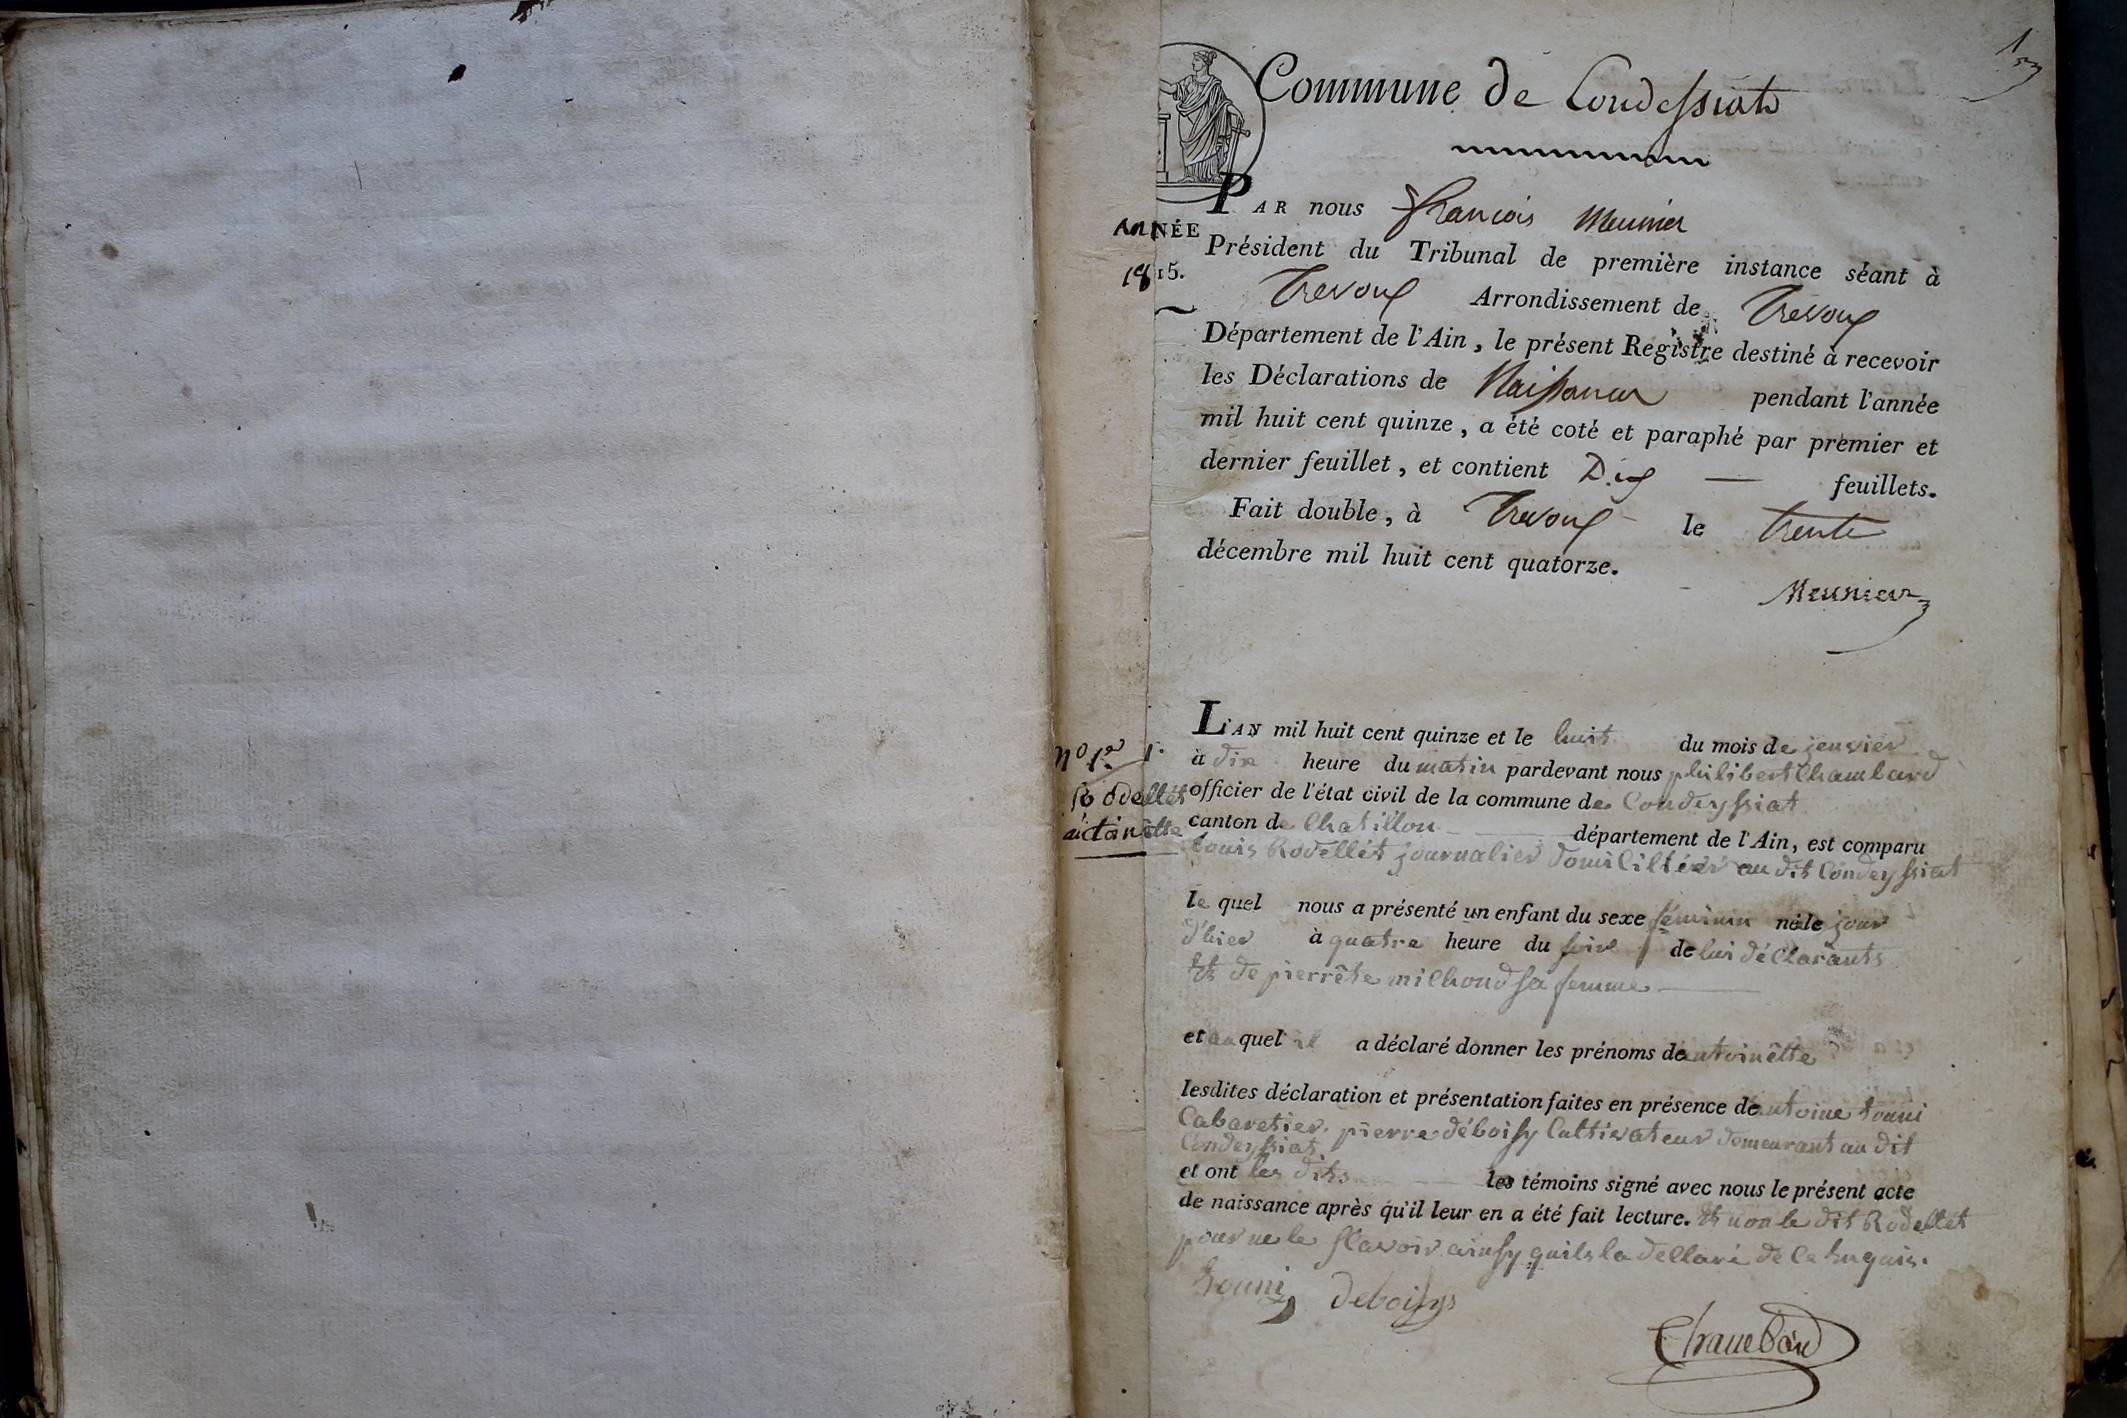 1er
Commune de Condessiat
PAR nous François Meunier
ANNÉE
Président du Tribunal de première instance séant à
1815.
Trevoux Arrondissement de Trevoux
Département de l'Ain, le présent Régistre destiné à recevoir
les Déclarations de Naissances pendant l'année
mil huit cent quinze, a été coté et paraphé par premier et
dernier feuillet, et contient Dix — feuillets.
Fait double, à Trevoux le trente
décembre mil huit cent quatorze.
Meunier
L'AN mil huit cent quinze et le huit du mois de jenvier
nº 1er 1.
à dix heure du matin pardevant nous philibert Chambard
Rodellét
officier de l'état civil de la commune de Condeyssiat
antoinêtte
canton de Chatillon département de l'Ain, est comparu
Louis Rodellét journalier domicilliér au dit Condeyssiat
le quel nous a présenté un enfant du sexe féminin né le jour
d'hier à quatre heure du soire de lui déclarants
Et de pierrête milhoud sa femme
et au quel il a déclaré donner les prénoms de antoinêtte
lesdites déclaration et présentation faites en présence de antoine touni
Cabaretier. pierre déboisy Cultivateur demeurant au dit
Condeyssiat
et ont les dits les témoins signé avec nous le présent acte
de naissance après qu'il leur en a été fait lecture. Et non le dit Rodellét
pour ne le sçavoir ainsy quils la dellaré de ce Enquis.
touni deboisys
Chambard